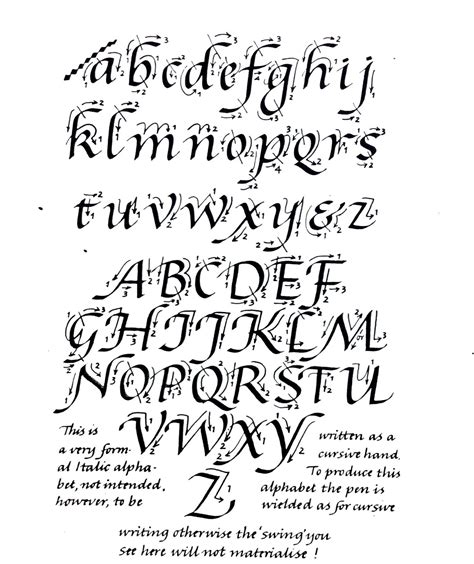 a b c d e f g h i j
k l m n o p q r s
t u v w x y & z
A B C D E F
G H I J K L M
N O P Q R S T U
V W X Y
Z
This is
a very form-
al Italic alpha-
bet, not intended,
however, to be
written as a
cursive hand.
To produce this
alphabet the pen is
wielded as for cursive
writing otherwise the 'swing' you
see here will not materialise !